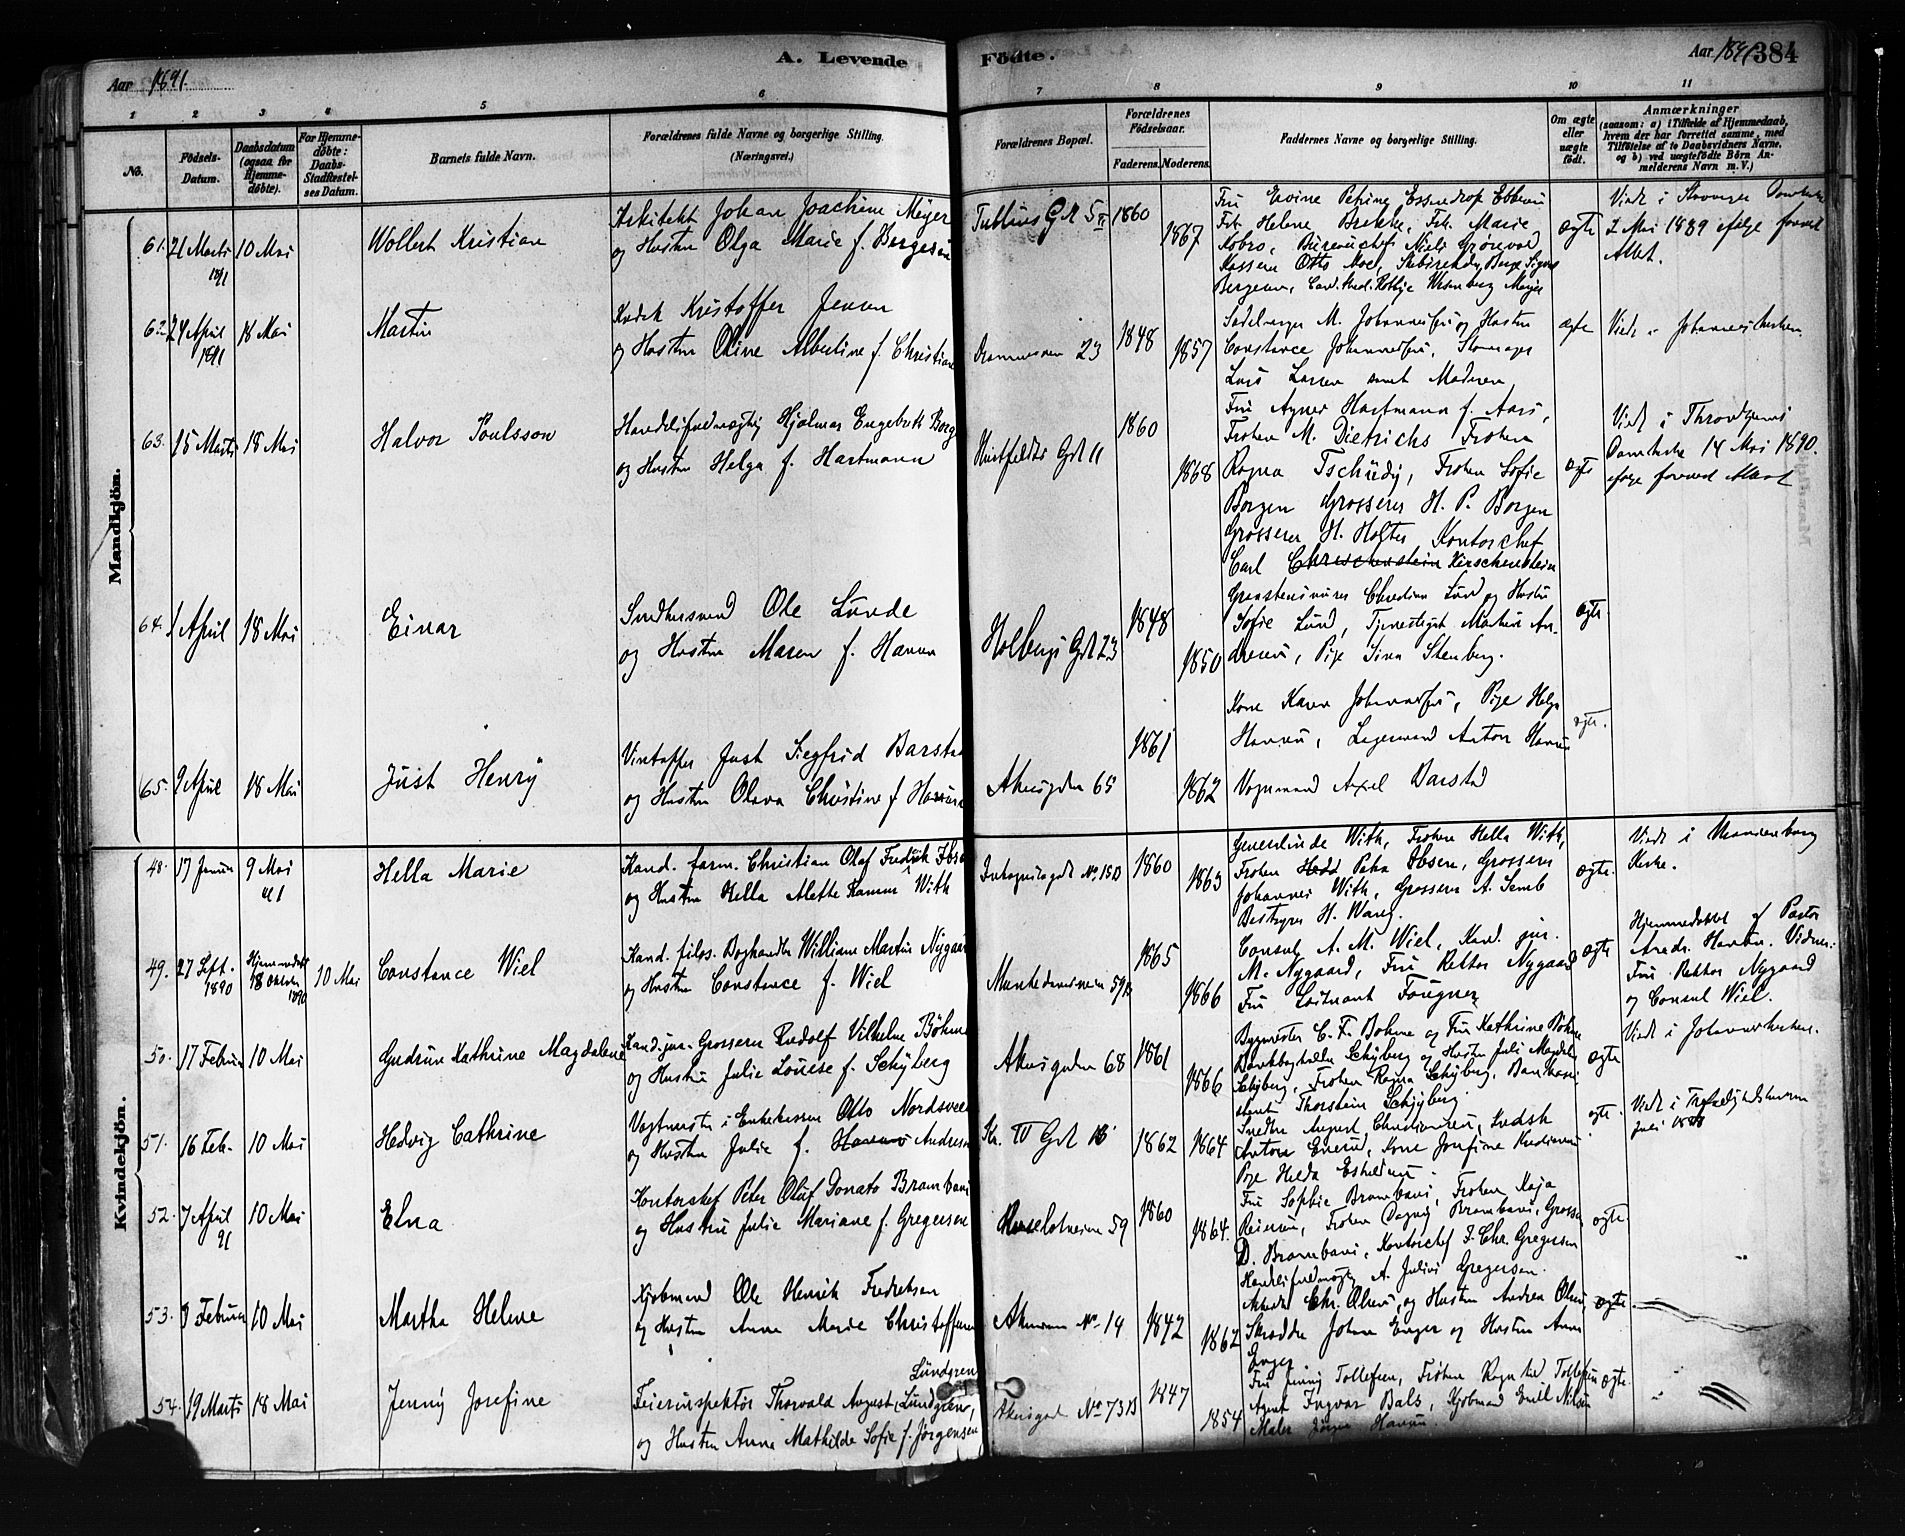 A. Levende
Födte.
Aar 1891.
Aar 1891
384
1 2 3 4 5 6 7 8 9 10 11
No.
Födsels-
Datum.
Daabsdatum
(ogsaa for
Hjemme-
døbte).
For Hjemme-
døbte:
Daabs-
Stadfæstel-
ses Datum.
Barnets fulde Navn.
Forældrenes fulde Navne og borgerlige Stilling.
(Næringsvei.)
Forældrenes Bopæl.
Forældrenes
Födselsaar.
Faderens.
Moderens.
Faddernes Navne og borgerlige Stilling.
Om ægte
eller
uægte
födt.
Anmærkninger
(saasom: a) i Tilfælde af Hjemmedaab,
hvem der har forrettet samme, med
Tilföielse af to Daabsvidners Navne,
og b) ved uægtefödte Börn An-
melderens Navn m. V.)
Mandkjön.
61. 21 Marts 1891 10 Mai
Wollert Kristian
Arkitekt Johan Joachim Meyer
og Hustru Olga Marie f. Bergesen
Tullins Gd 5 II 1860 1867
Fru Petrine Essendrop
Frk. Helene Brekke, Frk. Marie
Kobro, Bureauchef Niels
Kasserer Otto Moe,
ægte
Viet i Stavanger Domkirke
2 Mai 1889 ifølge foreved
Attest.
62. 24 April 1891 18 Mai
Martin
Kudsk Kristoffer Jensen
og Hustru Oline Albertine f. Christian
Drammensvn 23 1848 1857
Sadelmager M. Johannesen og Hustru
Constance Johannesen,
Lars Larsen samt Moderen,
ægte
Viet i Johanneskirken
63. 15 Marts 18 Mai
Halvor Poulsson
Handelsfuldmægtig Hjalmar Engebrett Borg
og Hustru Helga f. Hartmann
Huitfeldts Gd 11 1860 1868
Fru Agnes Hartmann f. Aars,
Frøken M. Dietrichs Frøken
Ragna Tschudy, Frøken Sofie
Borgen Grosserer H. P. Borgen
Grosserer H. Holter Kontorchef
Carl Hirschenstein
ægte
Viet i Throndhjems
Domkirke 14 Mai 1890.
ifølge foreved Attest
64. 1 April 18 Mai
Einar
Snedkersvend Ole Lunde
og Hustru Maren f. Hansen
Holbergs Gd 23 1848 1850
Christian Lund og Hustru
Sofie Lund, Tjenestepige Martin An-
dresen, Pige Sina Stenberg.
ægte
65. 9 April 18 Mai
Just Henry
Vintapper Just Siegfrid Barstad
og Hustru Olava Christine f. Hansen
Akersgaden 65 1861 1862
Kone Karen Johannesen, Pige Helga
Hansen, Lagermand Anton Hansen
Vognmand Axel Barstad
ægte.
Kvindekjön.
48. 17 Januar 9 Mai 91
Hella Marie
Kand. farm. Christian Olaf Fredrik Ibsen
og Hustru Hella Alette Ramm With
No. 15 1860 1863
Generalinde With, Frøken Hella With,
Frøken Petra Ibsen, Grosserer
Johannes With, Grosserer A. Semb
Bestyrer H. Wang.
ægte.
Viet i
Kirke.
49. 27 Sept. 1890 Hjemmedøbt 18 Oktober 1890 10 Mai
Constance Wiel
Kand. filos. Boghandler William Martin Nygaard
og Hustru Constance f. Wiel
Munkedamsveien 59 B 1865 1866
Consul A. M. Wiel, Kand. jur.
M. Nygaard, Fru Rektor Nygaard
Fru Løitnant Fougner
ægte
Hjemmedøbt af Pastor
Vidner:
Fru Rektor Nygaard
og Consul Wiel.
50. 17 Februar 10 Mai
Gudrun Kathrine Magdalene
Kand. jur. Grosserer Rudolf Vilhelm Böhme
og Hustru Julie Louise f. Schyberg
Akersgaden 68 1861 1866
Bygmester C. F. Bohme og Fru Kathrine Bohme
Schyberg og Hustru Juli Magdale
Schyberg, Frøken Ragna Schyberg,
Thorstein Schyberg.
ægte
Viet i Johanneskirken.
51. 16 Feb. 10 Mai
Hedvig Cathrine
Vagtmester i Otto Nordsveen
og Hustru Julie f. Andersen
1862 1864
Snedker August Christiansen, Kudsk
Anton Kone Josefine Kristiansen
Pige Hilda
ægte.
Viet i Trefoldighedskirken
Juli 1888
52. 7 April 91 10 Mai
Elna
Kontorchef Peter Oluf Donato Brambani
og Hustru Julie Mariane f. Gregersen
59 1860 1864.
Fru Sophie Brambani, Frøken Kaja
Reiersen, Frøken Dagny Brambani, Grosserer
D. Brambani, Kontorchef J. Chr. Gregersen
Handelsfuldmægtig A. Julius Gregersen.
ægte.
"
53. 8 Februar 10 Mai
Martha Helene
Kjøbmand Ole Henrik Fredriksen
og Hustru Anna Marie Christoffersen
Akersveien No. 14 1842 1862
Chr. Olsen, og Hustru Andrea Olsen
Skrædder Johan Enger og Hustru Anna
Enger
ægte.
54. 19 Marts 18 Mai
Jenny Josefine
Lundgren
Feierinspektør Thorvald August Lundgren,
og Hustru Anna Mathilde Sofie f. Jørgensen
Akersgad No 73 B 1847 1854
Fru Jenny Tollefsen, Frøken Ragnhild Tollefsen
Agent Ingvar Bals, Kjøbmand Emil Nilsen
Maler Jörgen Hansen.
ægte.
"